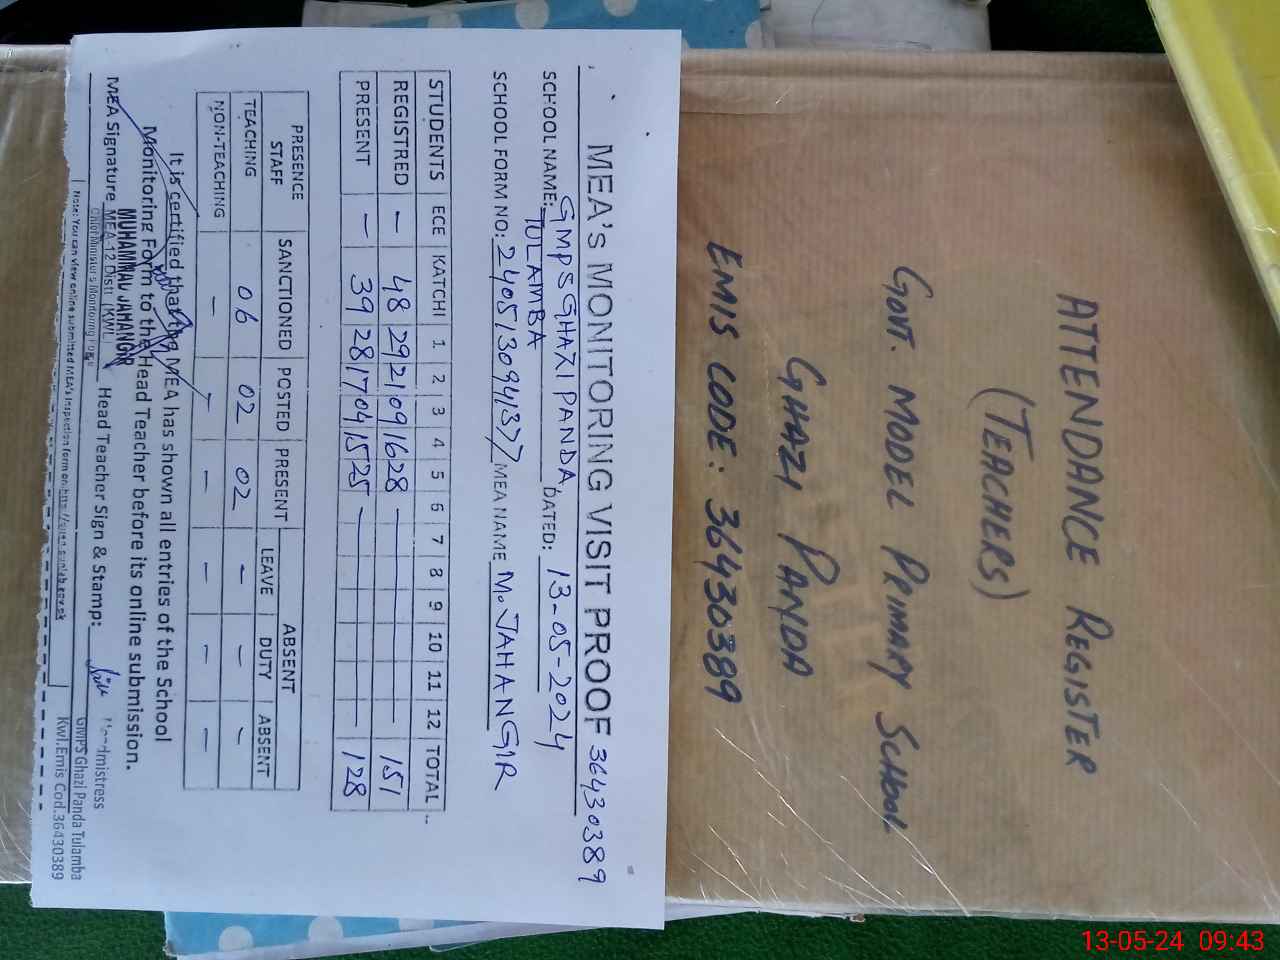 ATTENDANCE REGISTER
(TEACHERS)
GOVT. MODEL PRIMARY SCHOOL
GHAZI PANDA
EMIS CODE: 36430389
MEA's MONITORING VISIT PROOF 36430389
SCHOOL NAME: GMPS GHAZI PANDA, TULAMBA DATED: 13-05-2024
SCHOOL FORM NO: 240513094377 MEA NAME M. JAHANGIR
STUDENTS ECE KATCHI 1 2 3 4 5 6 7 8 9 10 11 12 TOTAL
REGISTRED - 48 29 21 09 16 28 - 151
PRESENT - 39 28 17 04 15 25 - 128
PRESENCE STAFF SANCTIONED POSTED PRESENT ABSENT
LEAVE DUTY ABSENT
TEACHING 06 02 02 - - -
NON-TEACHING - - - - - -
It is certified that the MEA has shown all entries of the School
Monitoring Form to the Head Teacher before its online submission.
MUHAMMAD JAHANGIR
MEA Signature MEA-12 Distt (KWL) Head Teacher Sign & Stamp:
Chief Minister's Monitoring Force
Headmistress
GMPS Ghazi Panda Tulamba
Kwl. Emis Cod. 36430389
Note: You can view online submitted MEA's inspection form on
13-05-24 09:43